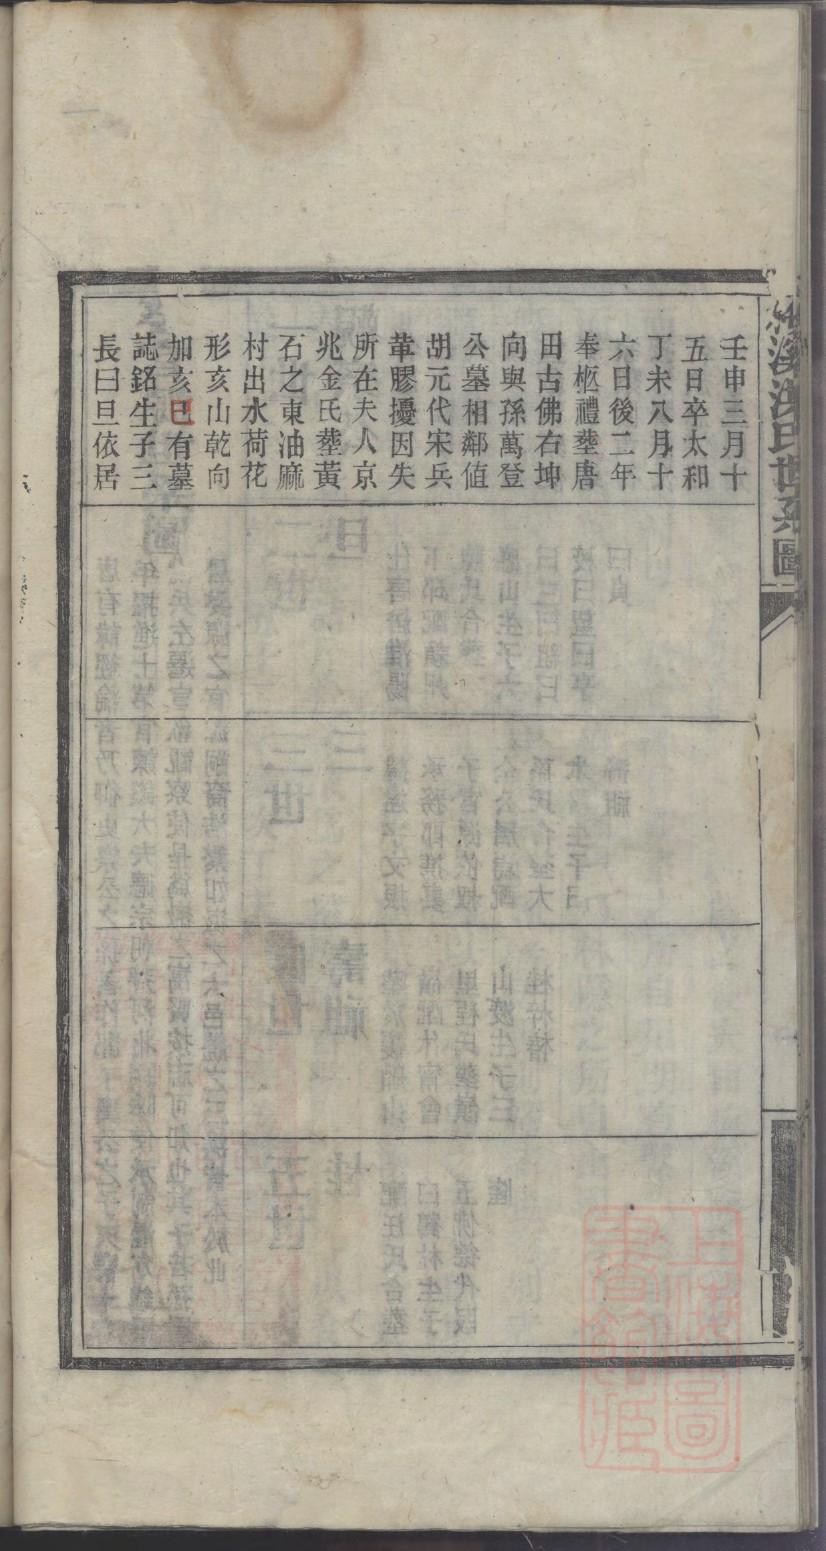 壬申三月十
五日卒太和
丁未八月十
六日後二年
奉柩禮塟唐
田古佛右坤
向與孫萬登
公墓相鄰值
胡元代宋兵
革膠擾因失
所在夫人京
兆金氏塟黃
石之東油麻
村出水荷花
形亥山乾向
加亥巳有墓
誌銘生子三
長曰旦依居
氏世系圖
上海圖
書館藏